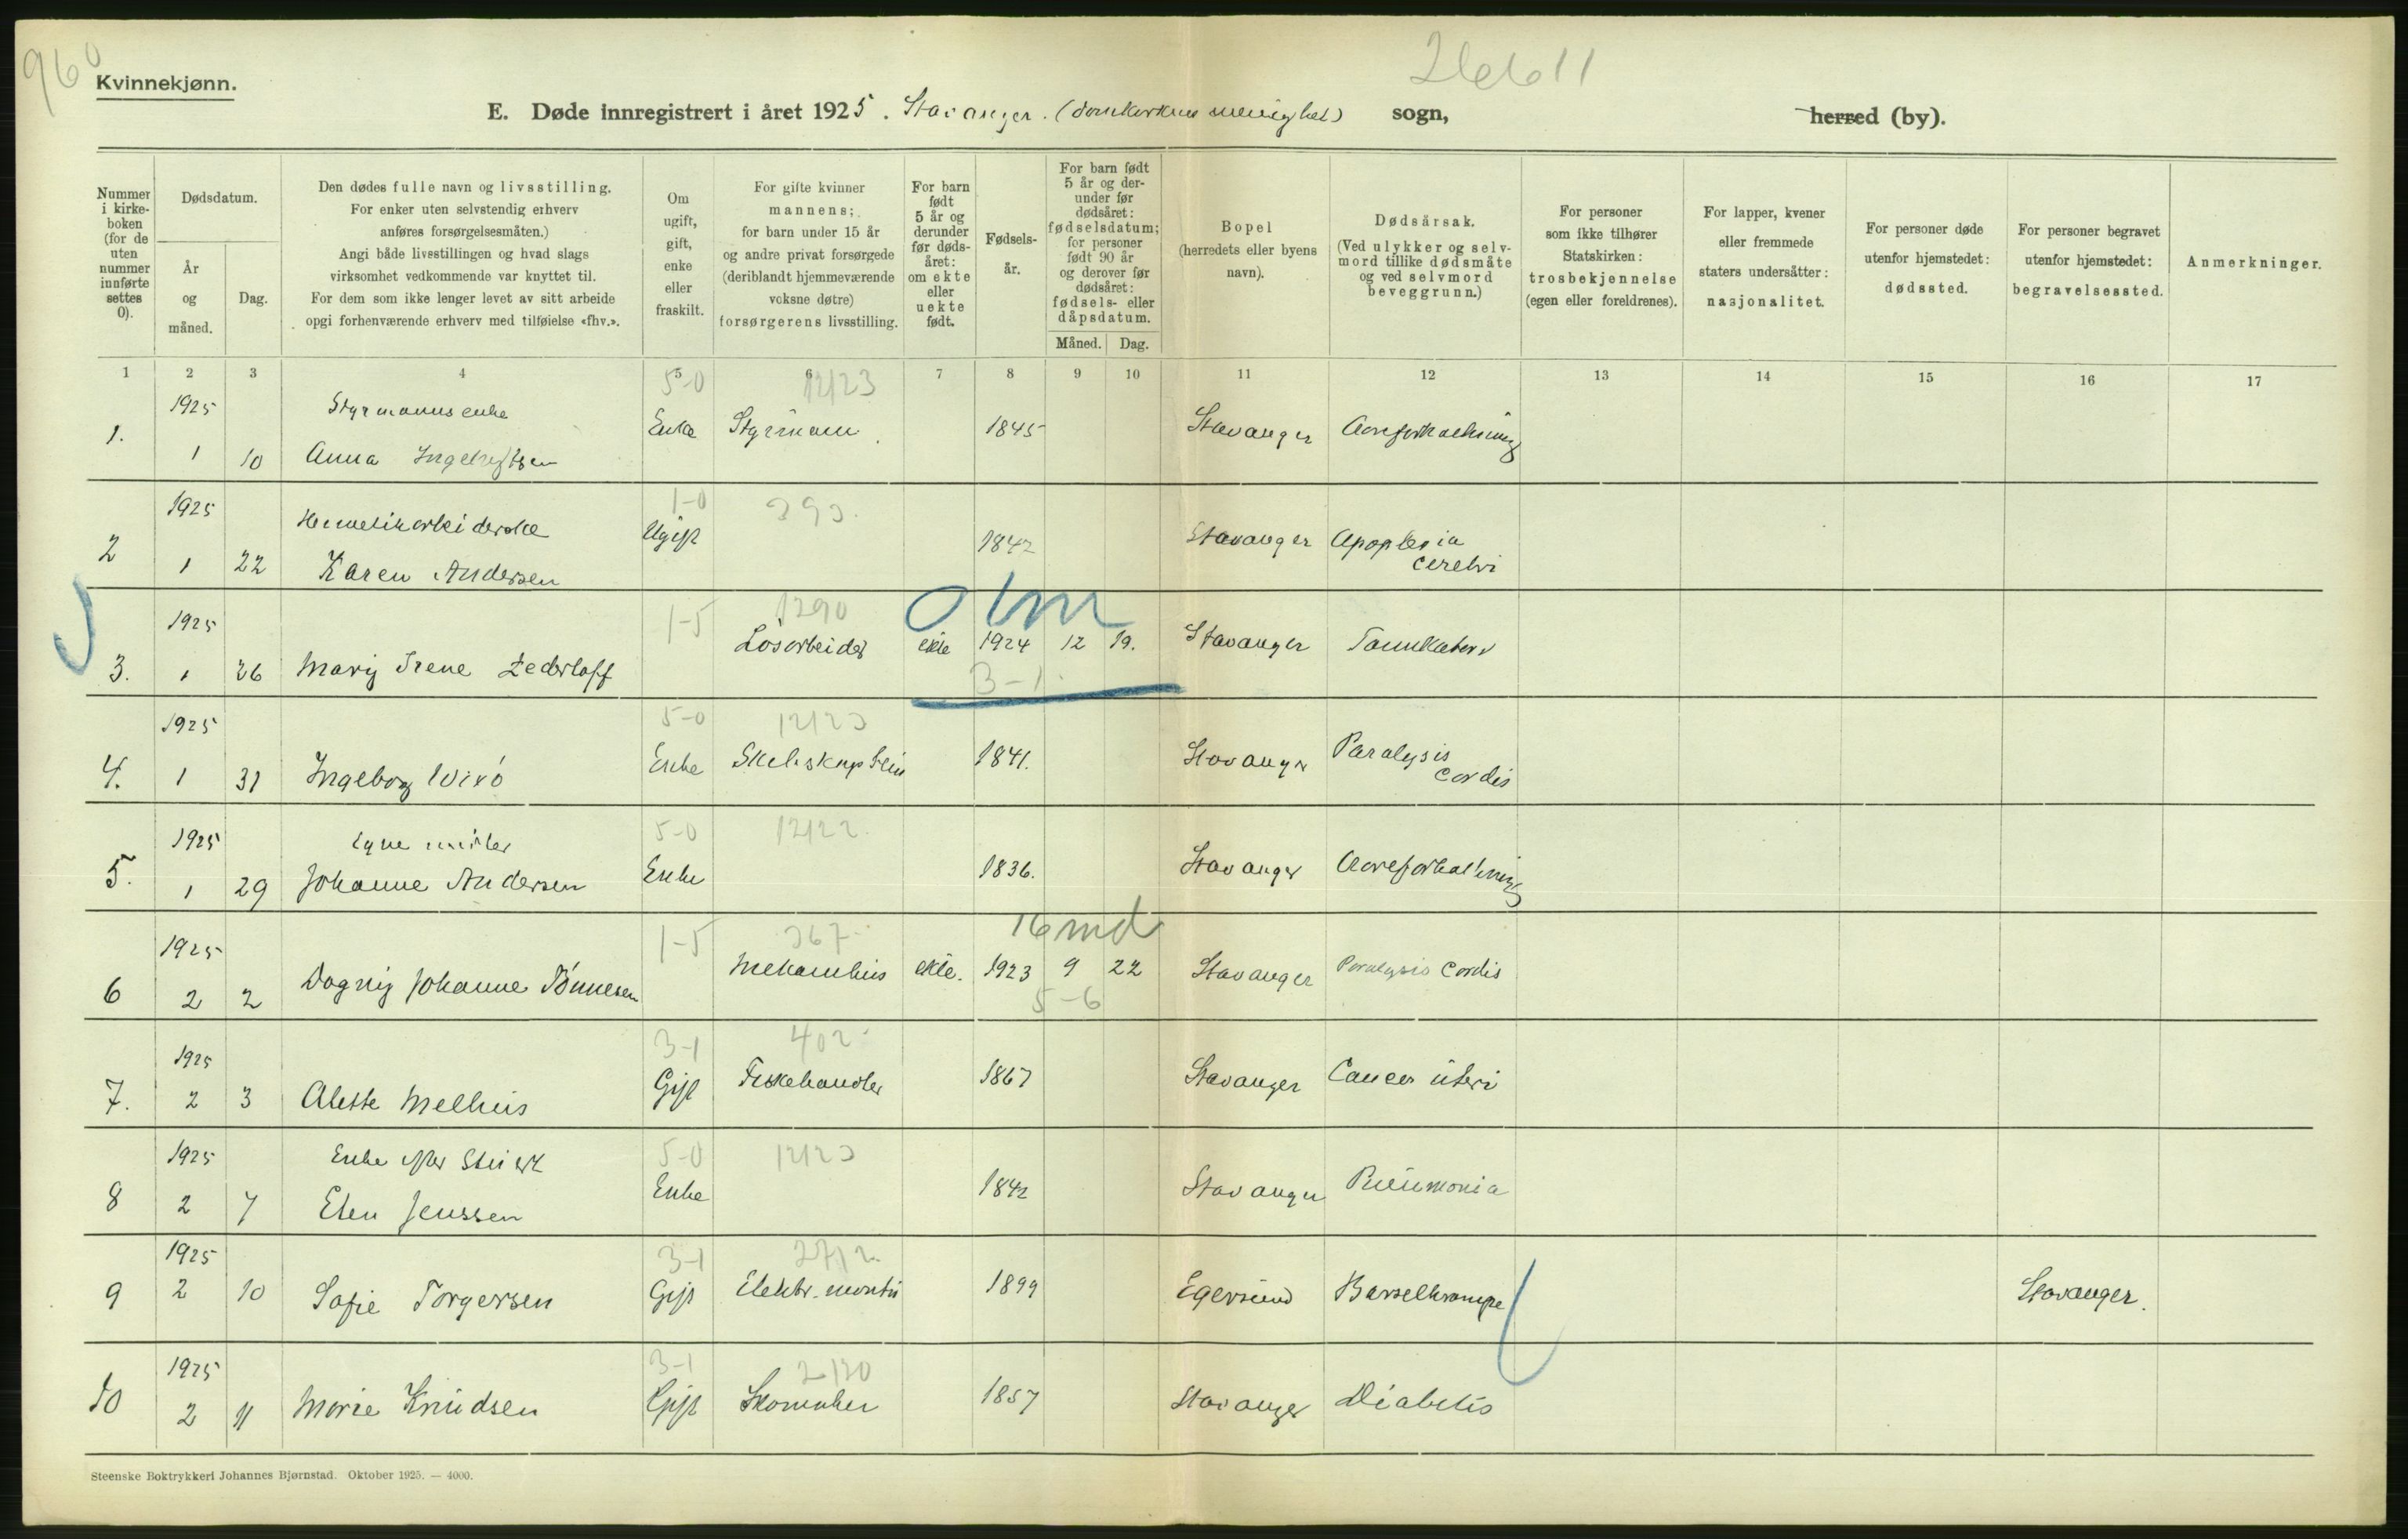 960
26611
Kvinnekjønn.
E. Døde innregistrert i året 1925. Stavanger. (Domkirkens menighet) sogn, herred (by).
Nummer i kirke-boken (for de uten nummer innførte settes 0).
Dødsdatum.
År og måned.
Dag.
Den dødes fulle navn og livsstilling.
For enker uten selvstendig erhverv
anføres forsørgelsesmåten.)
Angi både livsstillingen og hvad slags
virksomhet vedkommende var knyttet til.
For dem som ikke lenger levet av sitt arbeide
opgi forhenværende erhverv med tilføielse «fhv.».
Om ugift, gift, enke eller fraskilt.
For gifte kvinner
mannens;
for barn under 15 år
og andre privat forsørgede
(deriblandt hjemmeværende
voksne døtre)
forsørgerens livsstilling.
For barn født 5 år og derunder før døds-året: om ekte eller uekte født.
Fødsels-år.
For barn født 5 år og der-under før dødsåret: fødselsdatum; for personer født 90 år og derover før dødsåret: fødsels- eller dåpsdatum.
Måned. Dag.
Bopel
(herredets eller byens
navn).
Dødsårsak.
(Ved ulykker og selv-
mord tillike dødsmåte
og ved selvmord
beveggrunn.)
For personer
som ikke tilhører
Statskirken:
trosbekjennelse
(egen eller foreldrenes).
For lapper, kvener
eller fremmede
staters undersåtter:
nasjonalitet.
For personer døde
utenfor hjemstedet:
dødssted.
For personer begravet
utenfor hjemstedet:
begravelsessted.
Anmerkninger.
1 2 3 4 5 6 7 8 9 10 11 12 13 14 15 16 17
1925 Styrmanns enke 5-0 12/23
1. 1 10 Anna Enke Styrmann 1845 Stavanger Aareforkalkning
1925 1-0 293.
2 1 22 Karen Andersen Ugift 1842 Stavanger Apoplexia cerebri
1925 1-5 1290 0 1m
3. 1 26 Mary Irene Zederloff Løsarbeider ekte 1924 12 19. Stavanger
3-1.
1925 5-0 12/23
4. 1 31 Ingeborg Enke 1841. Stavanger Paralysis cordis
1925 Egne midler 5-0 12/22.
5. 1 29 Johanne Andersen Enke 1836. Stavanger Aareforkalkning
1925 1-5 267. 16 md
6 2 2 Dagny Johanne Tönnesen Mekanikus ekte. 1923 9 22 Stavanger Paralysis cordis
5-6
1925 3-1 402
7. 2 3 Alette Melhus Gift Fiskehandler 1867 Stavanger Cancer uteri
1925 Enke efter 5-0 12/23
8 2 7 Elen Jenssen Enke 1842 Stavanger Pneumonia
1925 3-1 27/2.
9 2 10 Sofie Torgersen Gift Elektr. montør 1899 Egersund Barselkrampe Stavanger.
1925 3-1 2/20
10 2 11 Marie Knudsen Gift Skomaker 1857 Stavanger Diabetis
Steenske Boktrykkeri Johannes Bjørnstad. Oktober 1925. — 4000.